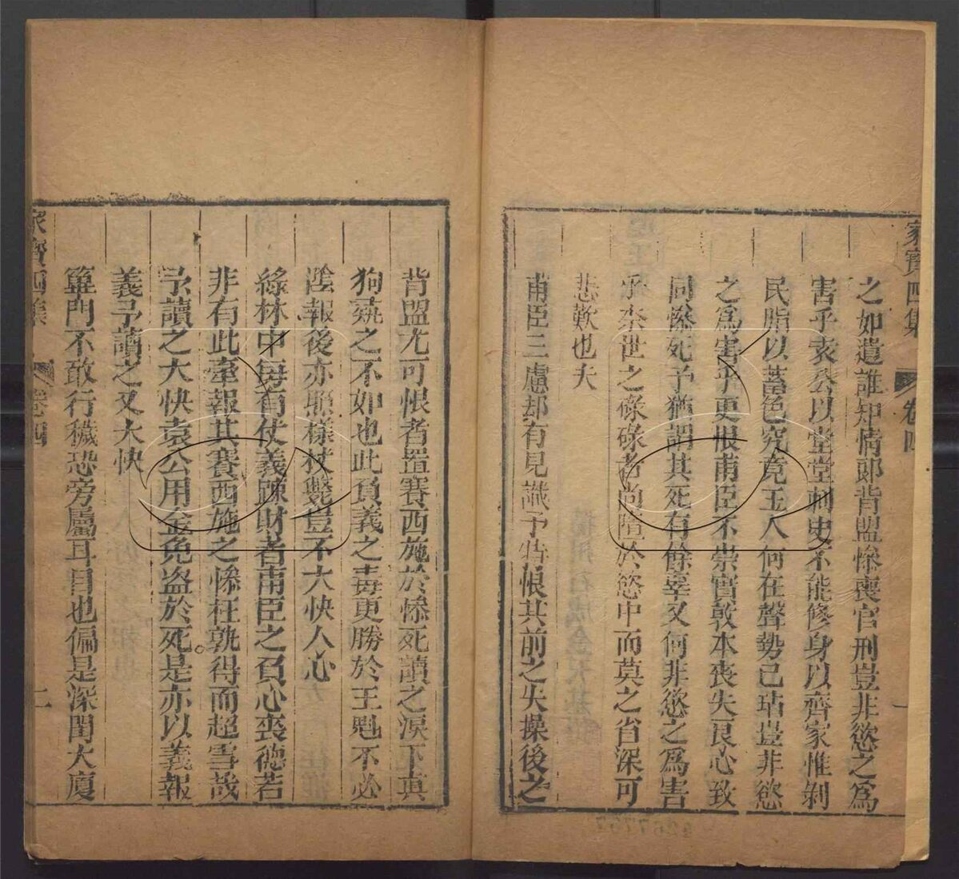 家寶四集
卷四
一
之如遺誰知情郎背盟慘喪官刑豈非慾之爲
害乎袁公以堂堂刺史不能修身以齊家惟剝
民脂以蓄色究竟玉人何在聲勢已玷豈非慾
之爲害乎更恨甫臣不崇實敦本喪失良心致
同慘死予猶謂其死有餘辜又何非慾之爲害
乎柰世之碌碌者尚隋於慾中而莫之省深可
悲歎也夫
甫臣三慮却有見識予特恨其前之失操後之
背盟尤可恨者置賽西施於慘死讀之淚下真
狗彘之不如也此負義之毒更勝於王魁不必
陰報後亦照樣杖斃豈不大快人心
綠林中每有仗義踈財者甫臣之負心喪德若
非有此牽報其賽西施之慘枉孰得而超雪哉
予讀之大快袁公用金免盜於死是亦以義報
義予讀之又大快
篳門不敢行穢恐旁屬耳目也偏是深閨大廈
家寶四集
卷四
二